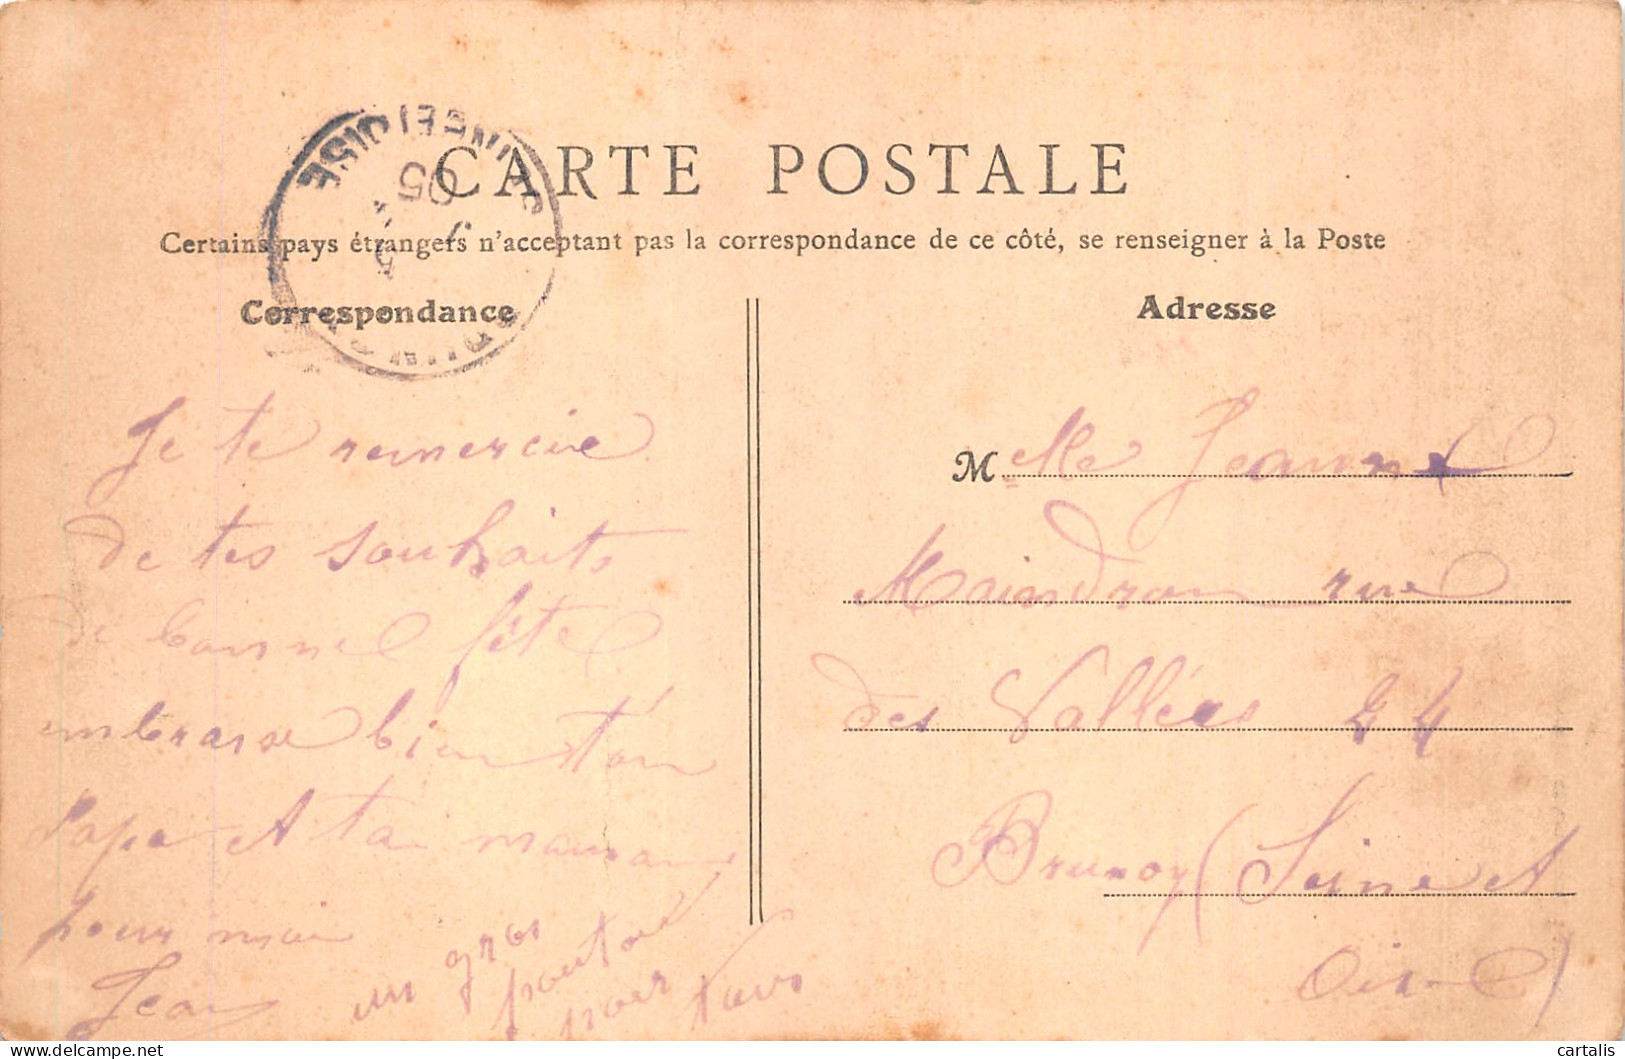 CARTE POSTALE
Certains pays étrangers n'acceptant pas la correspondance de ce côté, se renseigner à la Poste
SEINE ET OISE
05
Correspondance
Je te remercie
de tes souhaits
de bonne fête
embrasse bien ton
Papa et ta maman
pour moi
Jean
un gros
pour
Adresse
Melle Jeanne
Maindron rue
des Vallées 24
Brunoy (Seine et
Oise)
cartalis